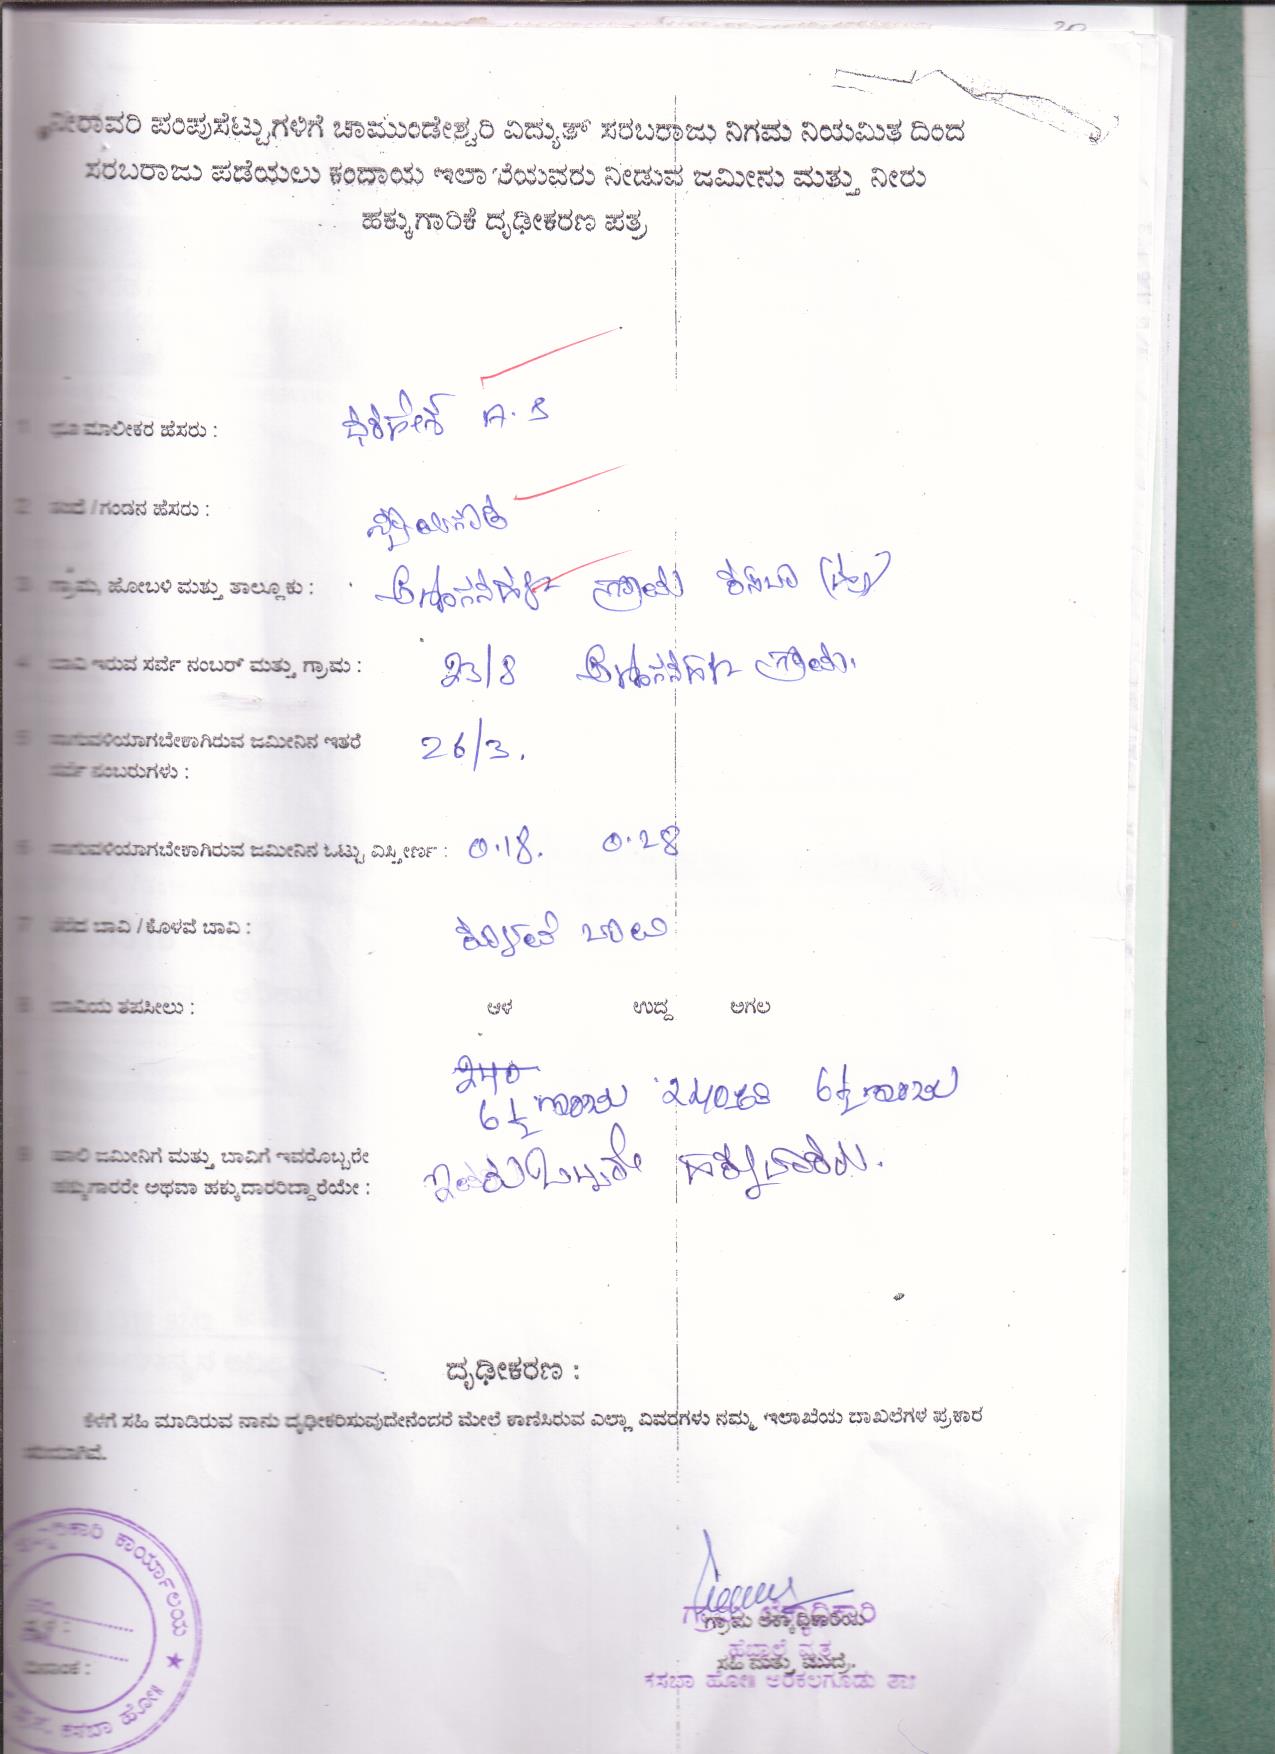 ನೀರಾವರಿ ಪಂಪುಸೆಟ್ಟುಗಳಿಗೆ ಚಾಮುಂಡೇಶ್ವರಿ ವಿದ್ಯುತ್ ಸರಬರಾಜು ನಿಗಮ ನಿಯಮಿತ ದಿಂದ
ಸರಬರಾಜು ಪಡೆಯಲು ಕಂದಾಯ ಇಲಾಖೆಯವರು ನೀಡುವ ಜಮೀನು ಮತ್ತು ನೀರು
ಹಕ್ಕುಗಾರಿಕೆ ದೃಢೀಕರಣ ಪತ್ರ
1 ಭೂ ಮಾಲೀಕರ ಹೆಸರು : A. S
2 ತಂದೆ / ಗಂಡನ ಹೆಸರು :
3 ಗ್ರಾಮ, ಹೋಬಳಿ ಮತ್ತು ತಾಲ್ಲೂಕು : ಗ್ರಾಮ ಕಸಬಾ
4 ಬಾವಿ ಇರುವ ಸರ್ವೆ ನಂಬರ್ ಮತ್ತು ಗ್ರಾಮ : 23/8 ಗ್ರಾಮ.
5 ಸಾಗುವಳಿಯಾಗಬೇಕಾಗಿರುವ ಜಮೀನಿನ ಇತರೆ 26/3.
ಸರ್ವೆ ನಂಬರುಗಳು :
6 ಸಾಗುವಳಿಯಾಗಬೇಕಾಗಿರುವ ಜಮೀನಿನ ಒಟ್ಟು ವಿಸ್ತೀರ್ಣ : 0.18. 0.28
7 ತೆರೆದ ಬಾವಿ / ಕೊಳವೆ ಬಾವಿ : ಕೊಳವೆ ಬಾವಿ
8 ಬಾವಿಯ ತಪಸೀಲು : ಆಳ ಉದ್ದ ಅಗಲ
240
6½ ಇಂಚು 240 ಅಡಿ 6½ ಇಂಚು
9 ಹಾಲಿ ಜಮೀನಿಗೆ ಮತ್ತು ಬಾವಿಗೆ ಇವರೊಬ್ಬರೇ ಇವರು ಒಬ್ಬರೇ
ಹಕ್ಕುಗಾರರೇ ಅಥವಾ ಹಕ್ಕುದಾರರಿದ್ದಾರೆಯೇ :
ದೃಢೀಕರಣ :
ಕೆಳಗೆ ಸಹಿ ಮಾಡಿರುವ ನಾನು ದೃಢೀಕರಿಸುವುದೇನೆಂದರೆ ಮೇಲೆ ಕಾಣಿಸಿರುವ ಎಲ್ಲಾ ವಿವರಗಳು ನಮ್ಮ ಇಲಾಖೆಯ ದಾಖಲೆಗಳ ಪ್ರಕಾರ
ಸರಿಯಾಗಿವೆ.
ಕಾರ್ಯಾಲಯ ★
ಕಸಬಾ ಹೋ॥
ಸ್ಥಳ :
ದಿನಾಂಕ :
ಗ್ರಾಮ ಲೆಕ್ಕಾಧಿಕಾರಿ
ಗ್ರಾಮ ಲೆಕ್ಕಾಧಿಕಾರಿಯ
ಹೆಬ್ಬಾಲೆ ವೃತ್ತ
ಸಹಿ ಮತ್ತು ಮುದ್ರೆ.
ಕಸಬಾ ಹೋ॥ ಅರಕಲಗೂಡು ತಾ॥